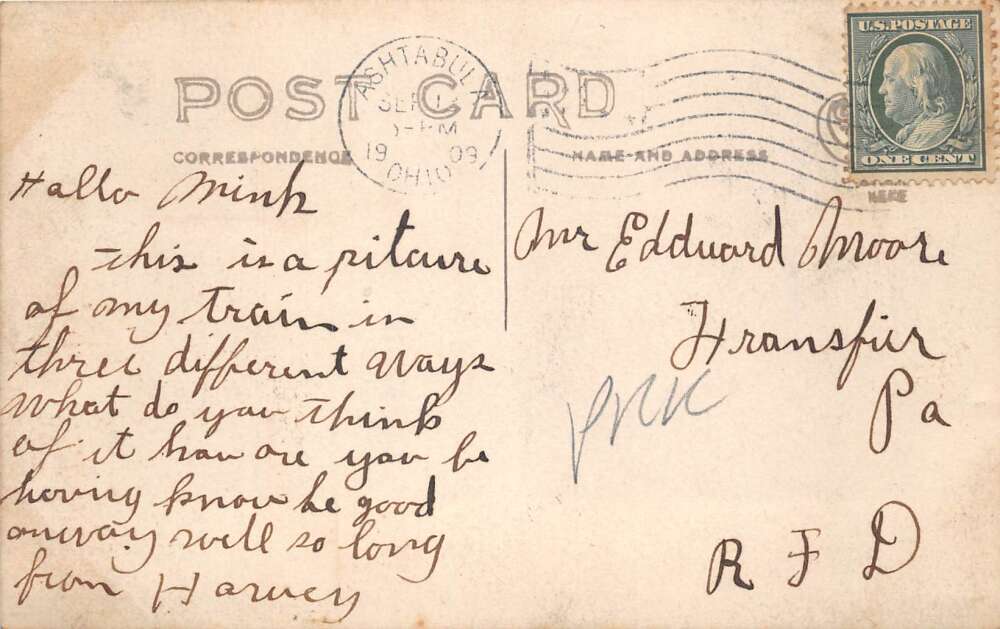 POST CARD
CORRESPONDENCE
NAME AND ADDRESS
HERE
ASHTABULA
SEP 1
PM
19 09
OHIO
U.S. POSTAGE
ONE CENT
Hallo Mink
this is a pitcure
of my train in
three different ways
What do you think
of it how are you be
having know be good
anway well so long
from Harvey
Mr Edduard Moore
Transfir
Pa
R F D